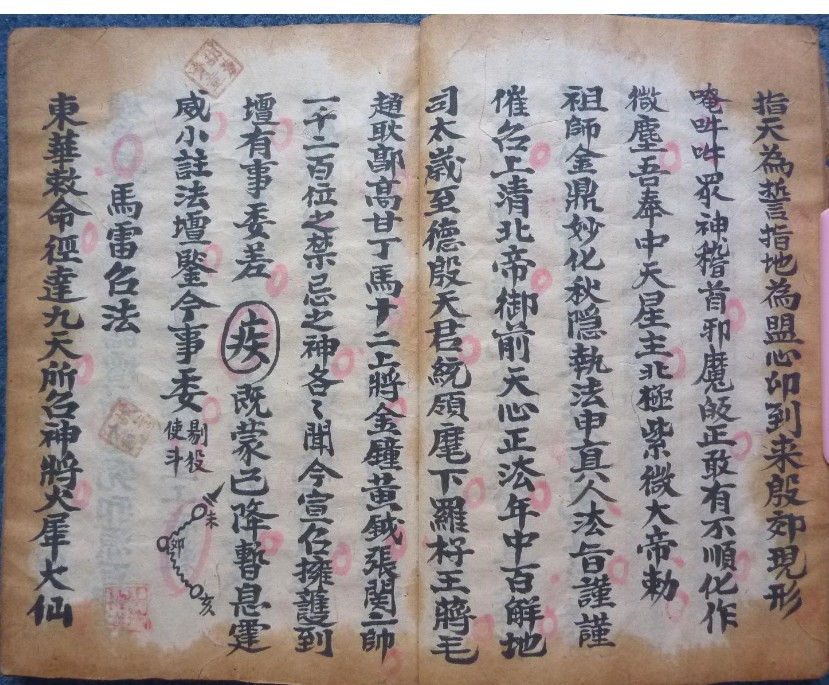 指天為誓指地為盟心印到来殷郊現形
唵吽吽眾神稽首邪魔皈正敢有不順化作
微塵吾奉中天星主北極紫微大帝勅
祖師金鼎妙化秋隐執法申真人法旨謹謹
催召上清北帝御前天心正法年中百解地
司太歲至德殷天君統領麾下羅杍王蔣毛
趙耿鄧高甘丁馬十二上將金鐘黃鉞張関二帥
一千二百位之禁忌之神各〻聞今宣召擁護到
壇有事委差 疾 既蒙已降暫息霆
威小註法壇鑒今事委
剔役
使斗
未
卯
亥
馬雷召法
東華敕命徑達九天所召神將火犀大仙